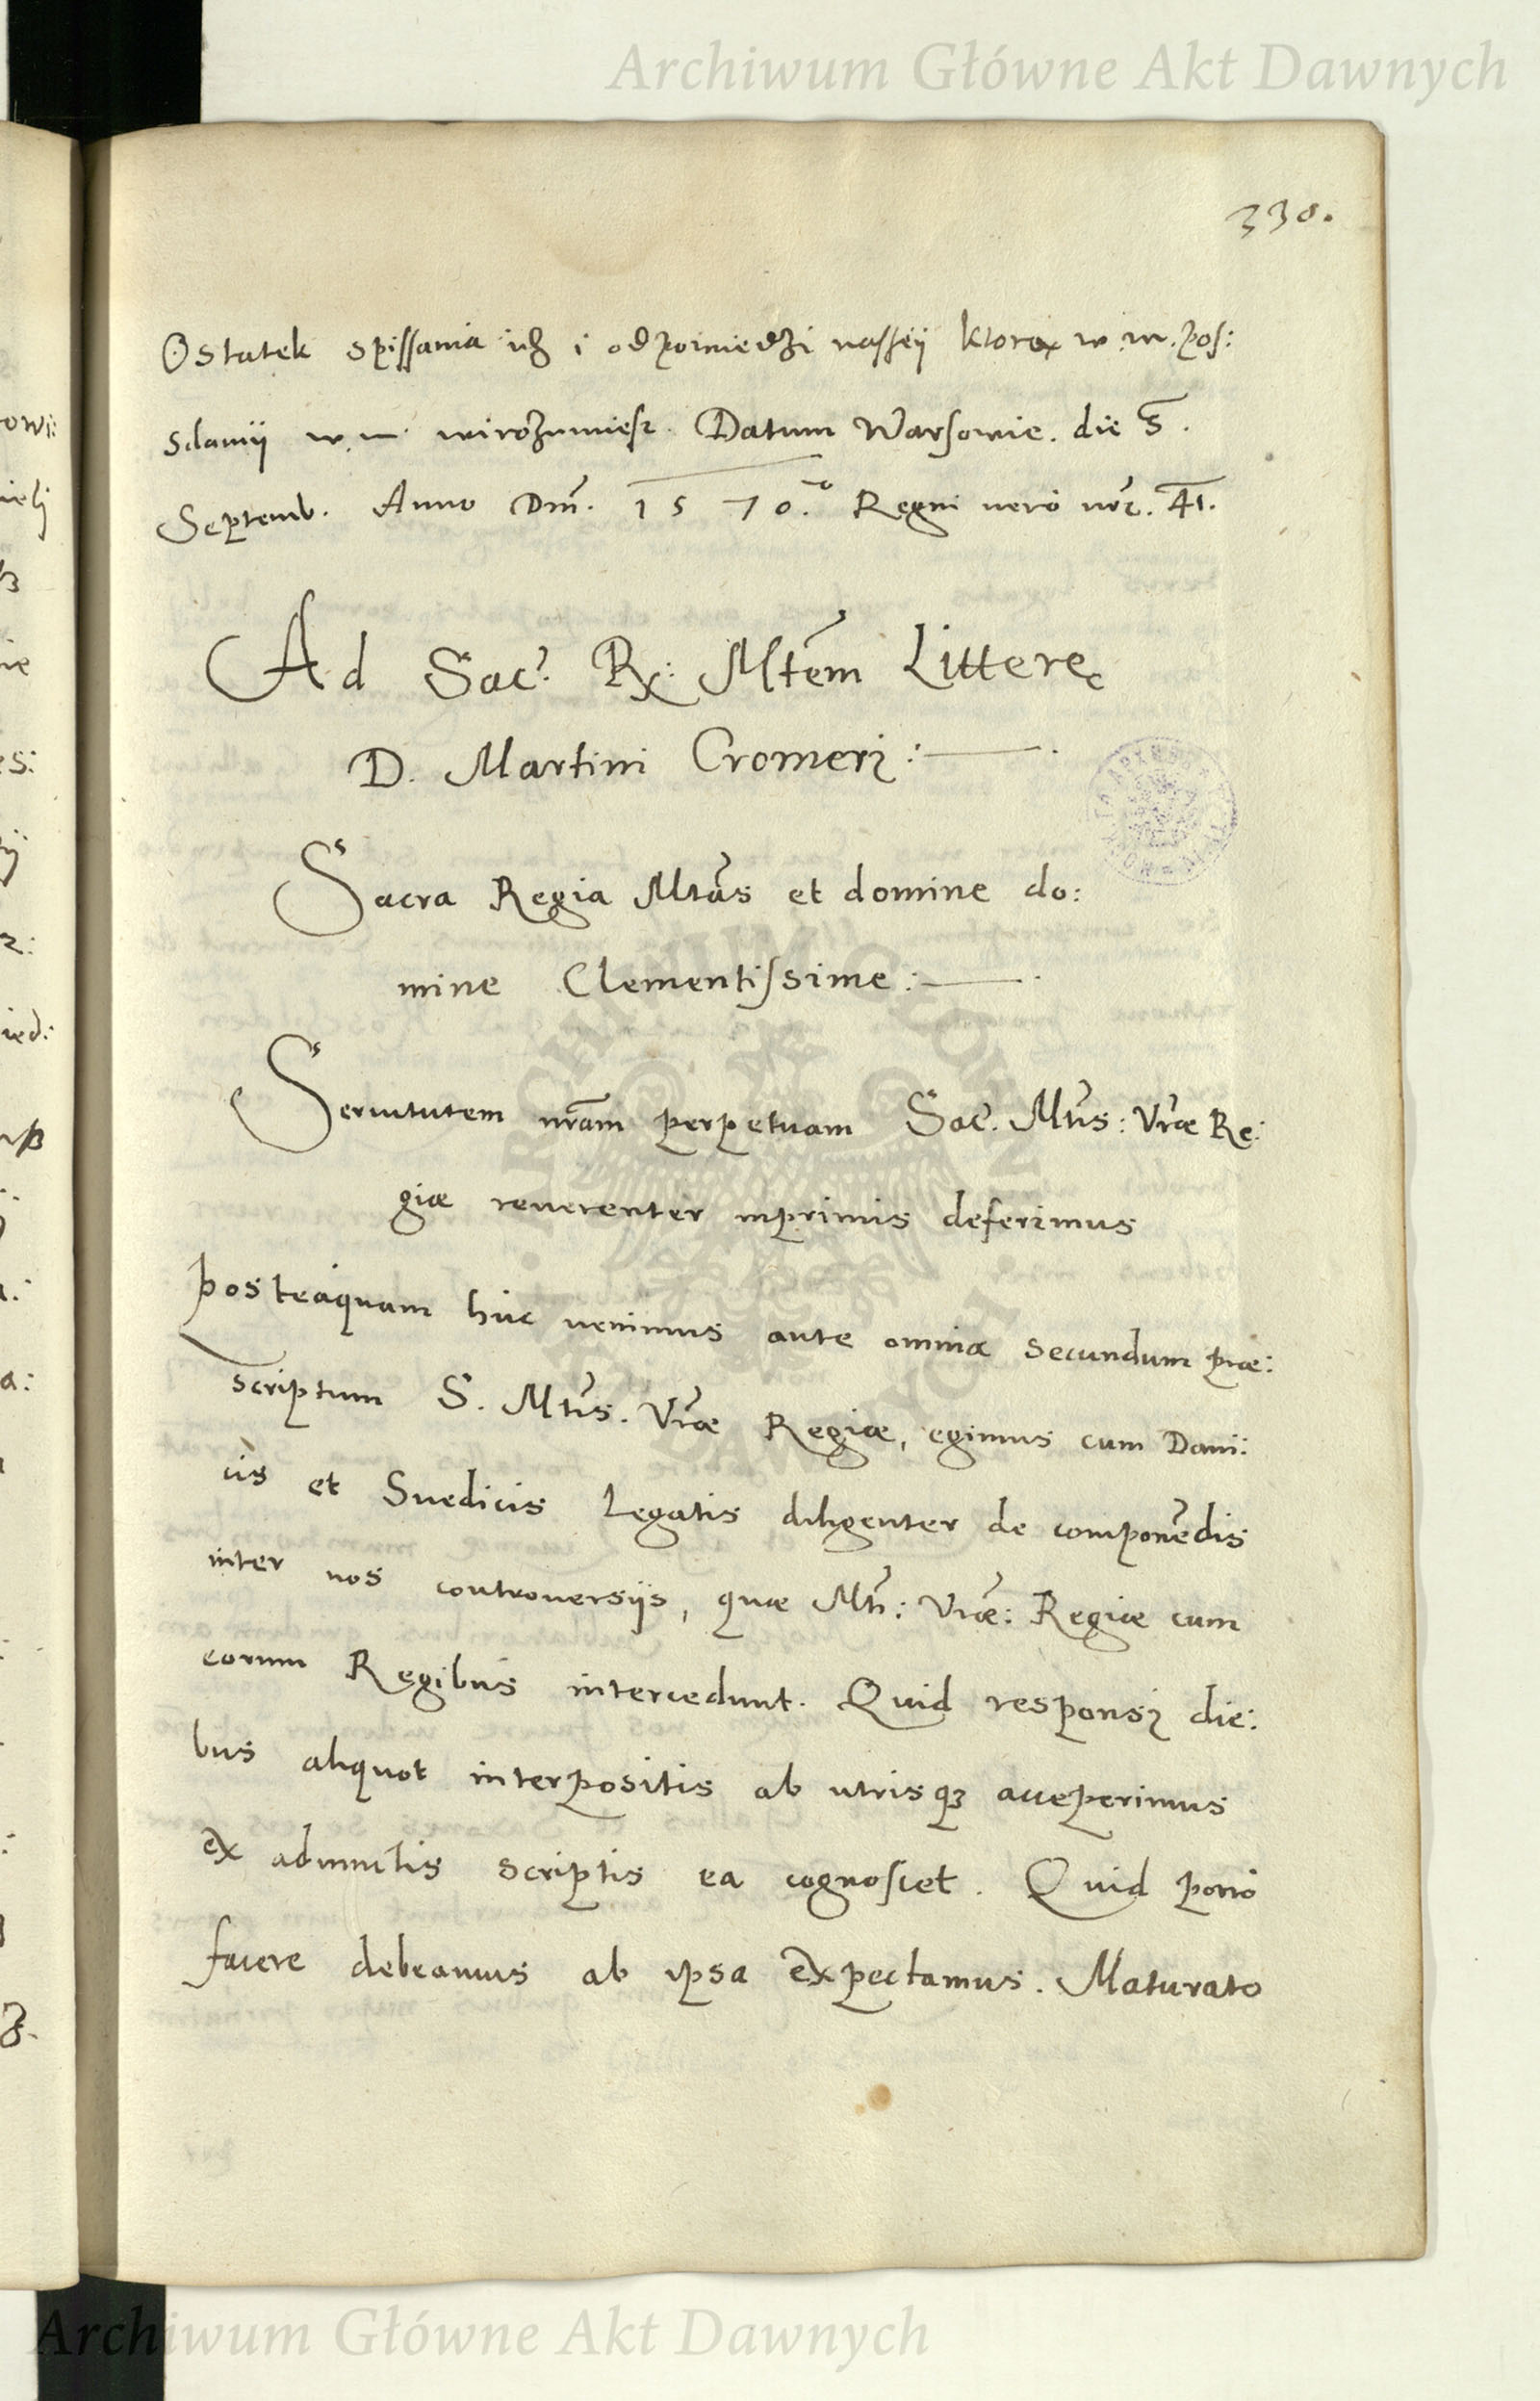 Archiwum Główne Akt Dawnych
330.
Ostatek spissania ich i odpowiedzi nasszeij ktorą w. m. pos:
sdamij w. m. wirozumiesz. Datum Warsowie. die 5.
Septemb. Anno Dm̃. 1570.º Regni vero nr̃i. 41.
Ad Sac. R. Mtem Litterę
D. Martini Cromeri:
Sacra Regia Mtas et domine do:
mine Clementissime:
Seruitutem nram perpetuam Sac. Mtis: Vræ Re:
giæ reuerenter inprimis deferimus
posteaquam huc venimus ante omnia secundum præ:
scriptum S. Mtis. Vræ Regiæ, egimus cum Dani:
cis et Suedicis Legatis diligenter de componẽdis
inter nos controuersijs, quæ Mti: Vræ: Regiæ cum
eorum Regibus intercedunt. Quid responsi die:
bus aliquot interpositis ab utrisqꝫ acceperimus
ex adiunctis scriptis ea cognoscet. Quid porro
facere debeamus ab ipsa expectamus. Maturato
Archiwum Główne Akt Dawnych